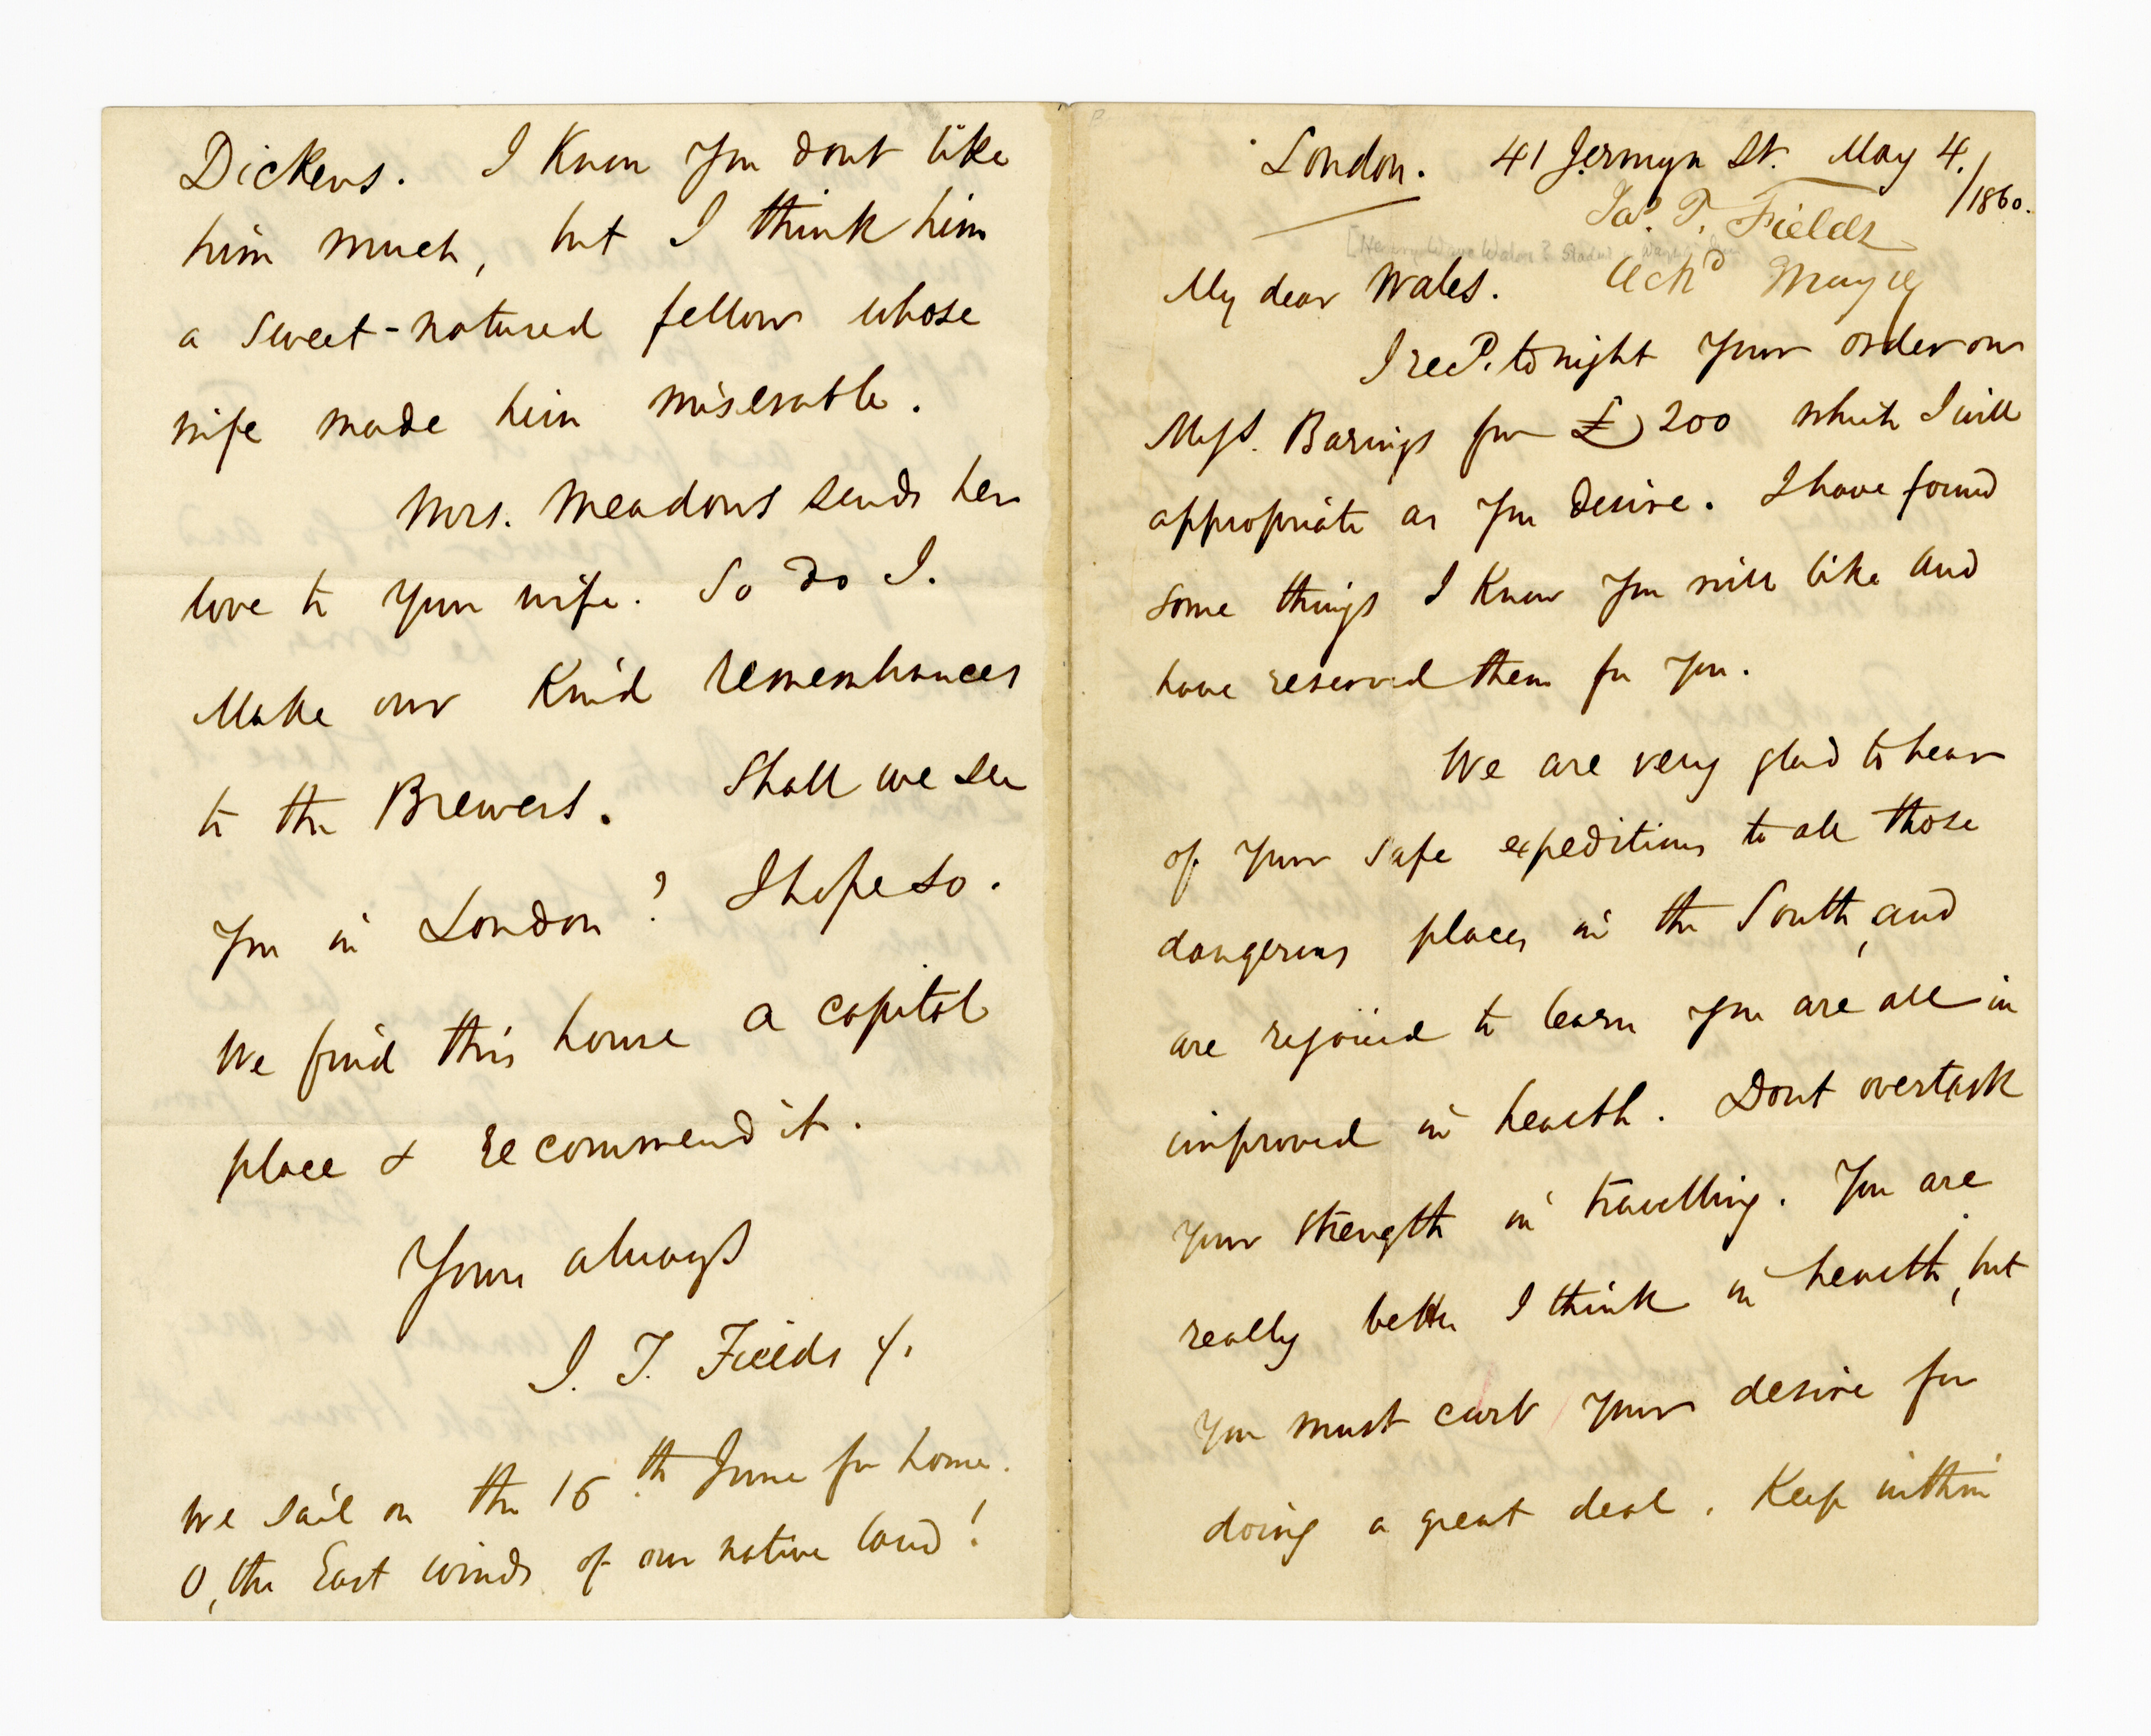 London. 41 Jermyn St. May 4./1860.
Jas. T. Fields
Ackd May
My dear Wales.
I recd. tonight your order on
Messs. Barings for £200 which I will
appropriate as you desire. I have found
some things I know you will like and
have reserved them for you.
We are very glad to hear
of your safe expeditions to all those
dangerous places in the South, and
are rejoiced to learn you are all in
improved in health. Dont overtask
your strength in travelling. You are
really better I think in health, but
you must curb your desire for
doing a great deal. Keep within
Dickens. I know you dont like
him much, but I think him
a sweet-natured fellow whose
wife made him miserable.
Mrs. Meadows sends her
love to your wife. So do I.
Make our kind remembrances
to the Brewers. Shall we see
you in London? I hope so.
We find this house a capital
place & recommend it.
Yours always
J. T. Fields
We sail on the 16th June for home.
O, the East winds of our native land!